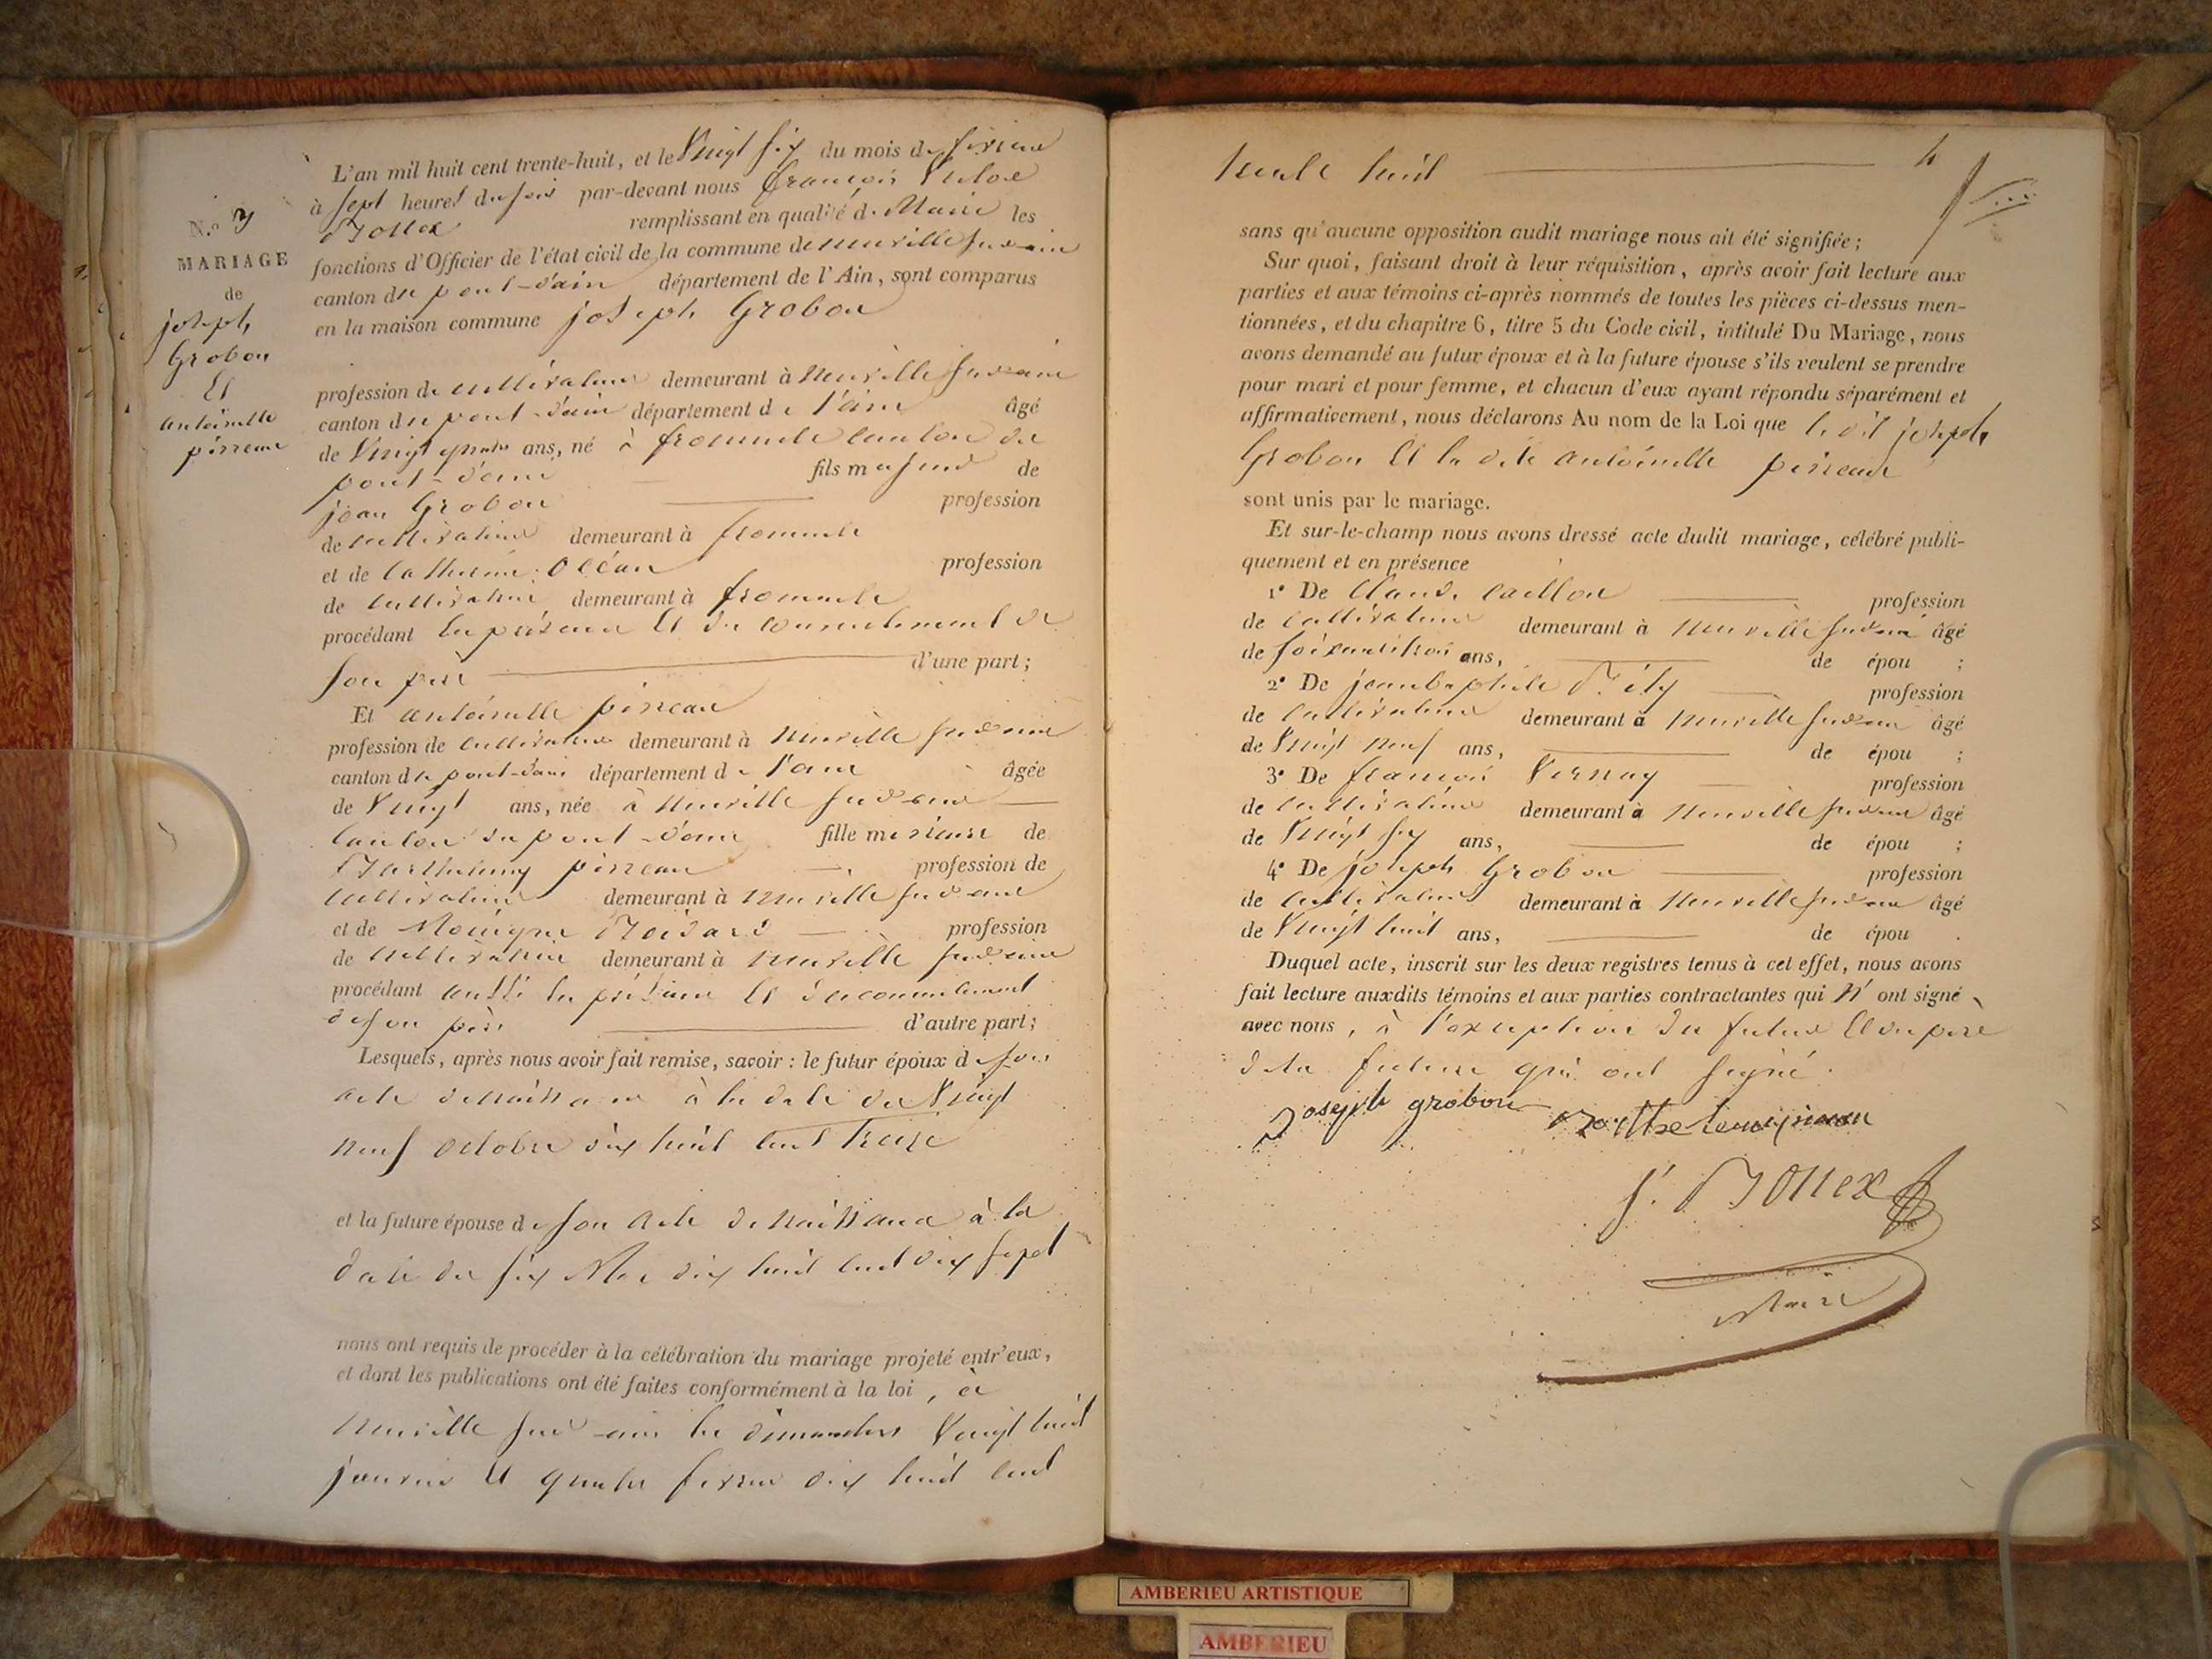 N.o 7
MARIAGE
de
joseph
Grobon
Et
antoinette
pirreau
L'an mil huit cent trente-huit, et le Vingt six du mois de fevrier
à sept heures du soir par-devant nous françois
Bottex remplissant en qualité de Maire les
fonctions d'Officier de l'état civil de la commune de neuville sur ain
canton de pont-d'ain département de l'Ain, sont comparus
en la maison commune joseph Grobon
profession de cultivateur demeurant à neuville sur ain
canton de pont-d'ain département de l'ain âgé
de Vingt quatre ans, né à fromente canton de
pont-d'ain fils majeur de
jean Grobon profession
de cultivateur demeurant à fromente
et de Catherine profession
de cultivatrice demeurant à fromente
procédant En présence Et du consentement de
son père d'une part;
Et antoinette pirreau
profession de cultivatrice demeurant à neuville sur ain
canton de pont-d'ain département de l'ain âgée
de Vingt ans, née à neuville sur ain
canton du pont-d'ain fille mineure de
Barthelemy pirreau profession de
cultivateur demeurant à neuville sur ain
et de profession
de cultivatrice demeurant à neuville sur ain
procédant aussi En présence Et du consentement
de son père d'autre part;
Lesquels, après nous avoir fait remise, savoir : le futur époux de son
acte de naissance à la date du Vingt
neuf octobre dix huit cent treize
et la future épouse de son acte de naissance à la
date du six Mai dix huit cent dix sept
nous ont requis de procéder à la célébration du mariage projeté entr'eux,
et dont les publications ont été faites conformément à la loi, à
neuville sur ain les dimanches Vingt huit
janvier et quatre fevrier dix huit cent
trente huit 4
sans qu'aucune opposition audit mariage nous ait été signifiée;
Sur quoi, faisant droit à leur réquisition, après avoir fait lecture aux
parties et aux témoins ci-après nommés de toutes les pièces ci-dessus men-
tionnées, et du chapitre 6, titre 5 du Code civil, intitulé Du Mariage, nous
avons demandé au futur époux et à la future épouse s'ils veulent se prendre
pour mari et pour femme, et chacun d'eux ayant répondu séparément et
affirmativement, nous déclarons Au nom de la Loi que le dit joseph
Grobon Et la dite antoinette pirreau
sont unis par le mariage.
Et sur-le-champ nous avons dressé acte dudit mariage, célébré publi-
quement et en présence
1° De Claude caillon profession
de cultivateur demeurant à neuville sur ain âgé
de soixante trois ans, de épou ;
2° De jean baptiste profession
de cultivateur demeurant à neuville sur ain âgé
de Vingt neuf ans, de épou ;
3° De françois Vernay profession
de cultivateur demeurant à neuville sur ain âgé
de Vingt six ans, de épou ;
4° De joseph Grobon profession
de cultivateur demeurant à neuville sur ain âgé
de Vingt huit ans, de épou .
Duquel acte, inscrit sur les deux registres tenus à cet effet, nous avons
fait lecture auxdits témoins et aux parties contractantes qui n' ont signé
avec nous, à l'exception du futur Et du père
de la future qui ont signé.
Joseph grobon
f. Bottex
Maire
AMBERIEU ARTISTIQUE
AMBERIEU